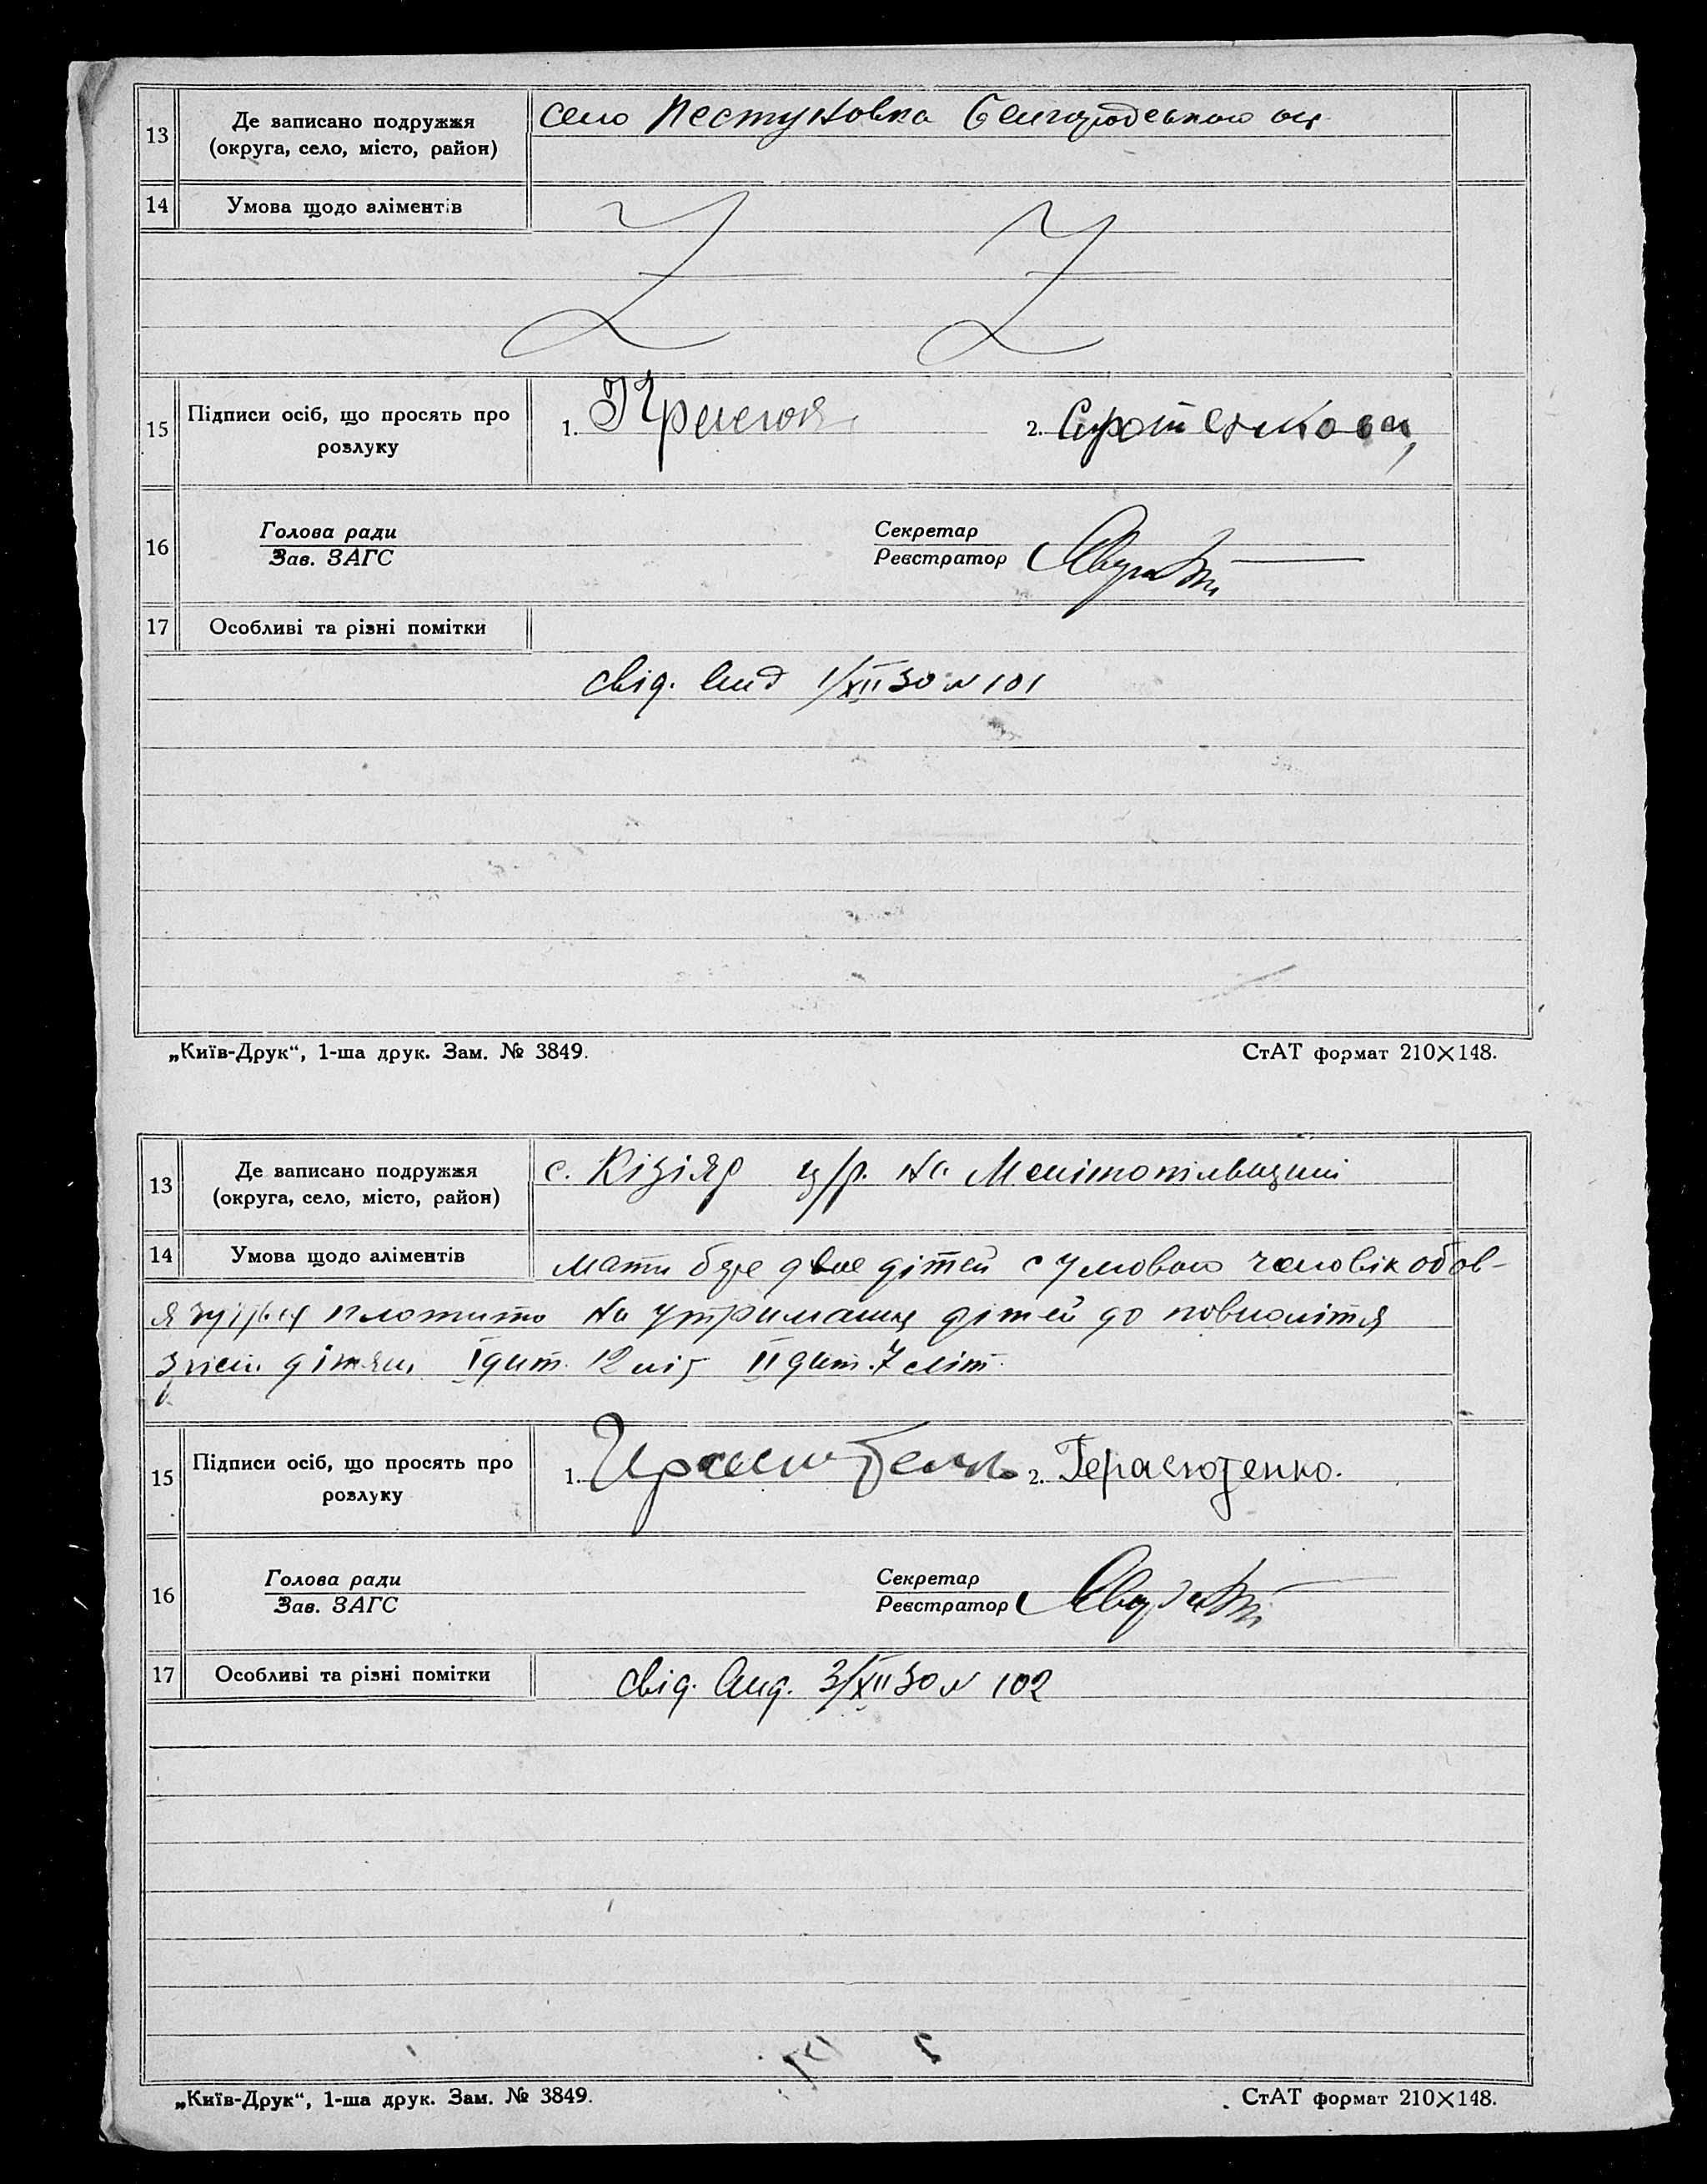 13 Де записано подружжя село Пестуновка
(округа, село, місто, район)
14 Умова щодо аліментів
15 Підписи осіб, що просять про 1. 2. Сиротенкова
розлуку
16 Голова ради Секретар
Зав. ЗАГС Реєстратор
17 Особливі та різні помітки
свід. вид 1/XII 30 № 101
„Київ-Друк“, 1-ша друк. Зам. № 3849. СтАТ формат 210×148.
13 Де записано подружжя с. Кізіяр ц/р. на Мелітопільщині
(округа, село, місто, район)
14 Умова щодо аліментів мати бере двоє дітей с умовою чоловік обов-
платити на утримання дітей до повноліття
дітям I дит. 12 літ II дит. 7 літ.
15 Підписи осіб, що просять про 1. 2. Герасютенко.
розлуку
16 Голова ради Секретар
Зав. ЗАГС Реєстратор
17 Особливі та різні помітки свід. вид. 3/XII 30 № 102
„Київ-Друк“, 1-ша друк. Зам. № 3849. СтАТ формат 210×148.